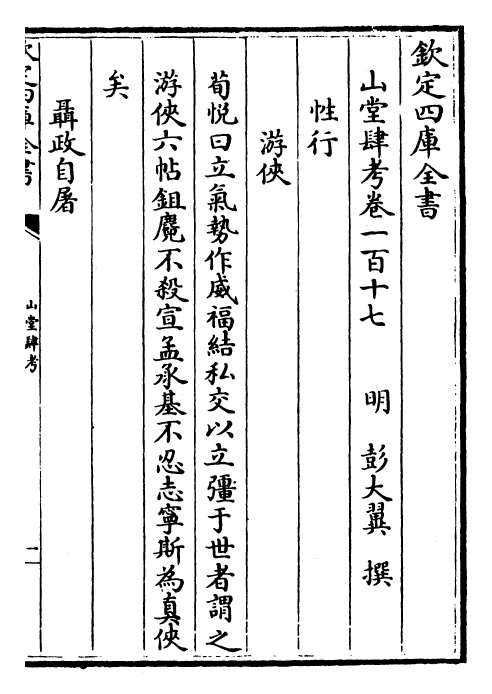 欽定四庫全書
山堂肆考卷一百十七
明 彭大翼 撰
性行
游俠
荀悅曰立氣勢作威福結私交以立彊于世者謂之
游俠六帖鉏麑不殺宣孟承基不忍志寧斯為真俠
矣
聶政自屠
欽定四庫全書
山堂肆考
一